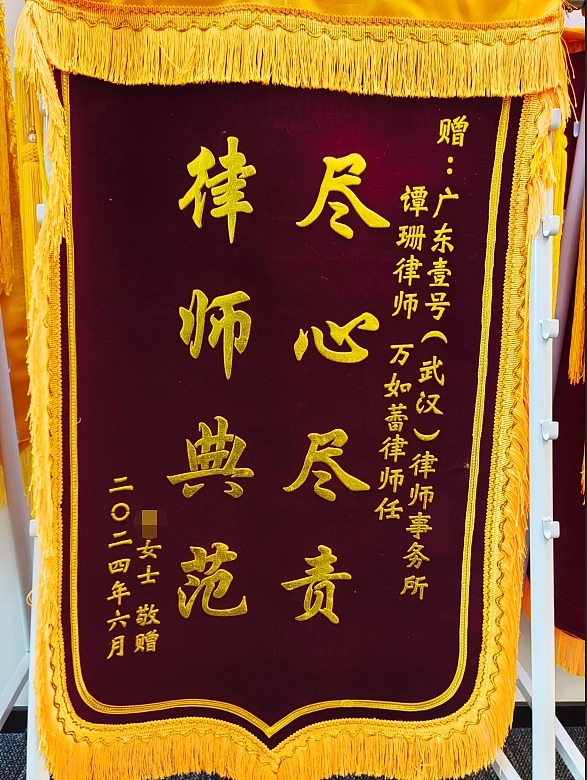 赠：广东壹号（武汉）律师事务所
谭珊律师 万如蕾律师任
尽心尽责
律师典范
女士 敬赠
二〇二四年六月